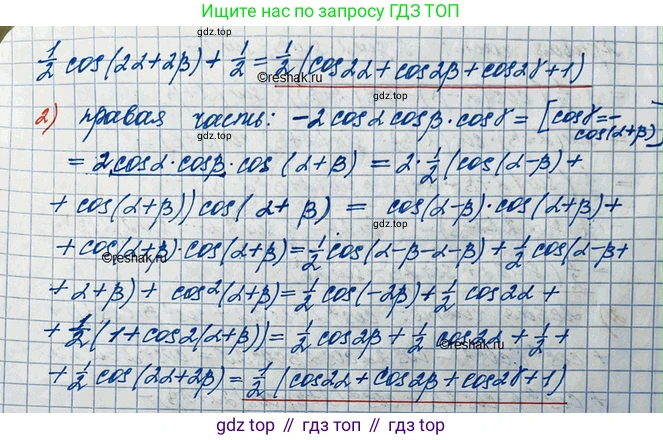 Ищите нас по запросу ГДЗ ТОП
1/2 cos(2α+2β) + 1/2 = 1/2 (cos2α + cos2β + cos2γ + 1)
©reshak.ru
2) правая часть: -2 cosα cosβ · cosγ = [cosγ = -
cos(α+β)]
= 2 cosα · cosβ · cos (α+β) = 2 · 1/2 (cos(α-β) +
+ cos(α+β)) cos( α+ β) = cos(α-β) · cos(α+β) +
©reshak.ru
+ cos(α+β) · cos(α+β) = 1/2 cos(α-β-α-β) + 1/2 cos(α-β+
©reshak.ru
+ α+β) + cos²(α+β) = 1/2 cos(-2β) + 1/2 cos2α +
+ 1/2 (1 + cos2(α+β)) = 1/2 cos2β + 1/2 cos2α + 1/2 +
©reshak.ru
+ 1/2 cos(2α+2β) = 1/2 (cos2α + cos2β + cos2γ + 1)
gdz.top // гдз.топ // gdz.top // гдз.топ